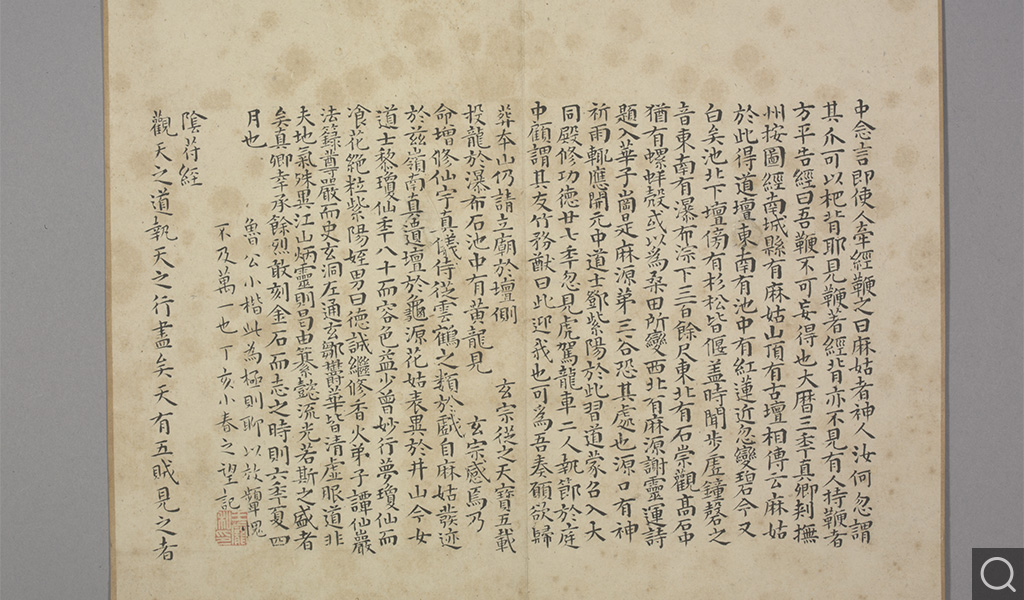 中念言即使人牵經鞭之曰麻姑者神人汝何忽謂
其爪可以杷背耶見鞭著經背亦不見有人持鞭者
方平告經曰吾鞭不可妄得也大曆三季真卿刺撫
州按圖經南城縣有麻姑山頂有古壇相傳云麻姑
於此得道壇東南有池中有紅蓮近忽變碧今又
白矣池北下壇傍有杉松皆偃盖時聞步虛鐘磬之
音東南有瀑布淙下三百餘尺東北有石崇觀高石中
猶有螺蚌殼或以為桑田所變西北有麻源謝靈運詩
題入華子崗是麻源弟三谷恐其處也源口有神
祈雨輒應開元中道士鄧紫陽於此習道蒙召入大
同殿修功德廿七季忽見虎駕龍車二人執節於庭
中顧謂其友竹務猷曰此迎我也可為吾奏願欲歸
葬本山仍請立廟於壇側 玄宗從之天寶五載
投龍於瀑布石池中有黃龍見 玄宗感焉乃
命增修仙宇真儀侍從雲鶴之類於戲自麻姑發迹
於兹嶺南真遺壇於龜源花姑表異於井山今女
道士黎瓊仙季八十而容色益少曾妙行夢瓊仙而
飡花絕粒紫陽姪男曰德誠繼修香火弟子譚仙巖
法籙尊嚴而史玄洞左通玄鄒鬱華皆清虛服道非
夫地氣殊異江山炳靈則曷由纂懿流光若斯之盛者
矣真卿幸承餘烈敢刻金石而志之時則六季夏四
月也
魯公小楷此為極則聊以放顰愧
不及萬一也丁亥小春之望記
陰苻經
觀天之道執天之行盡矣天有五賊見之者